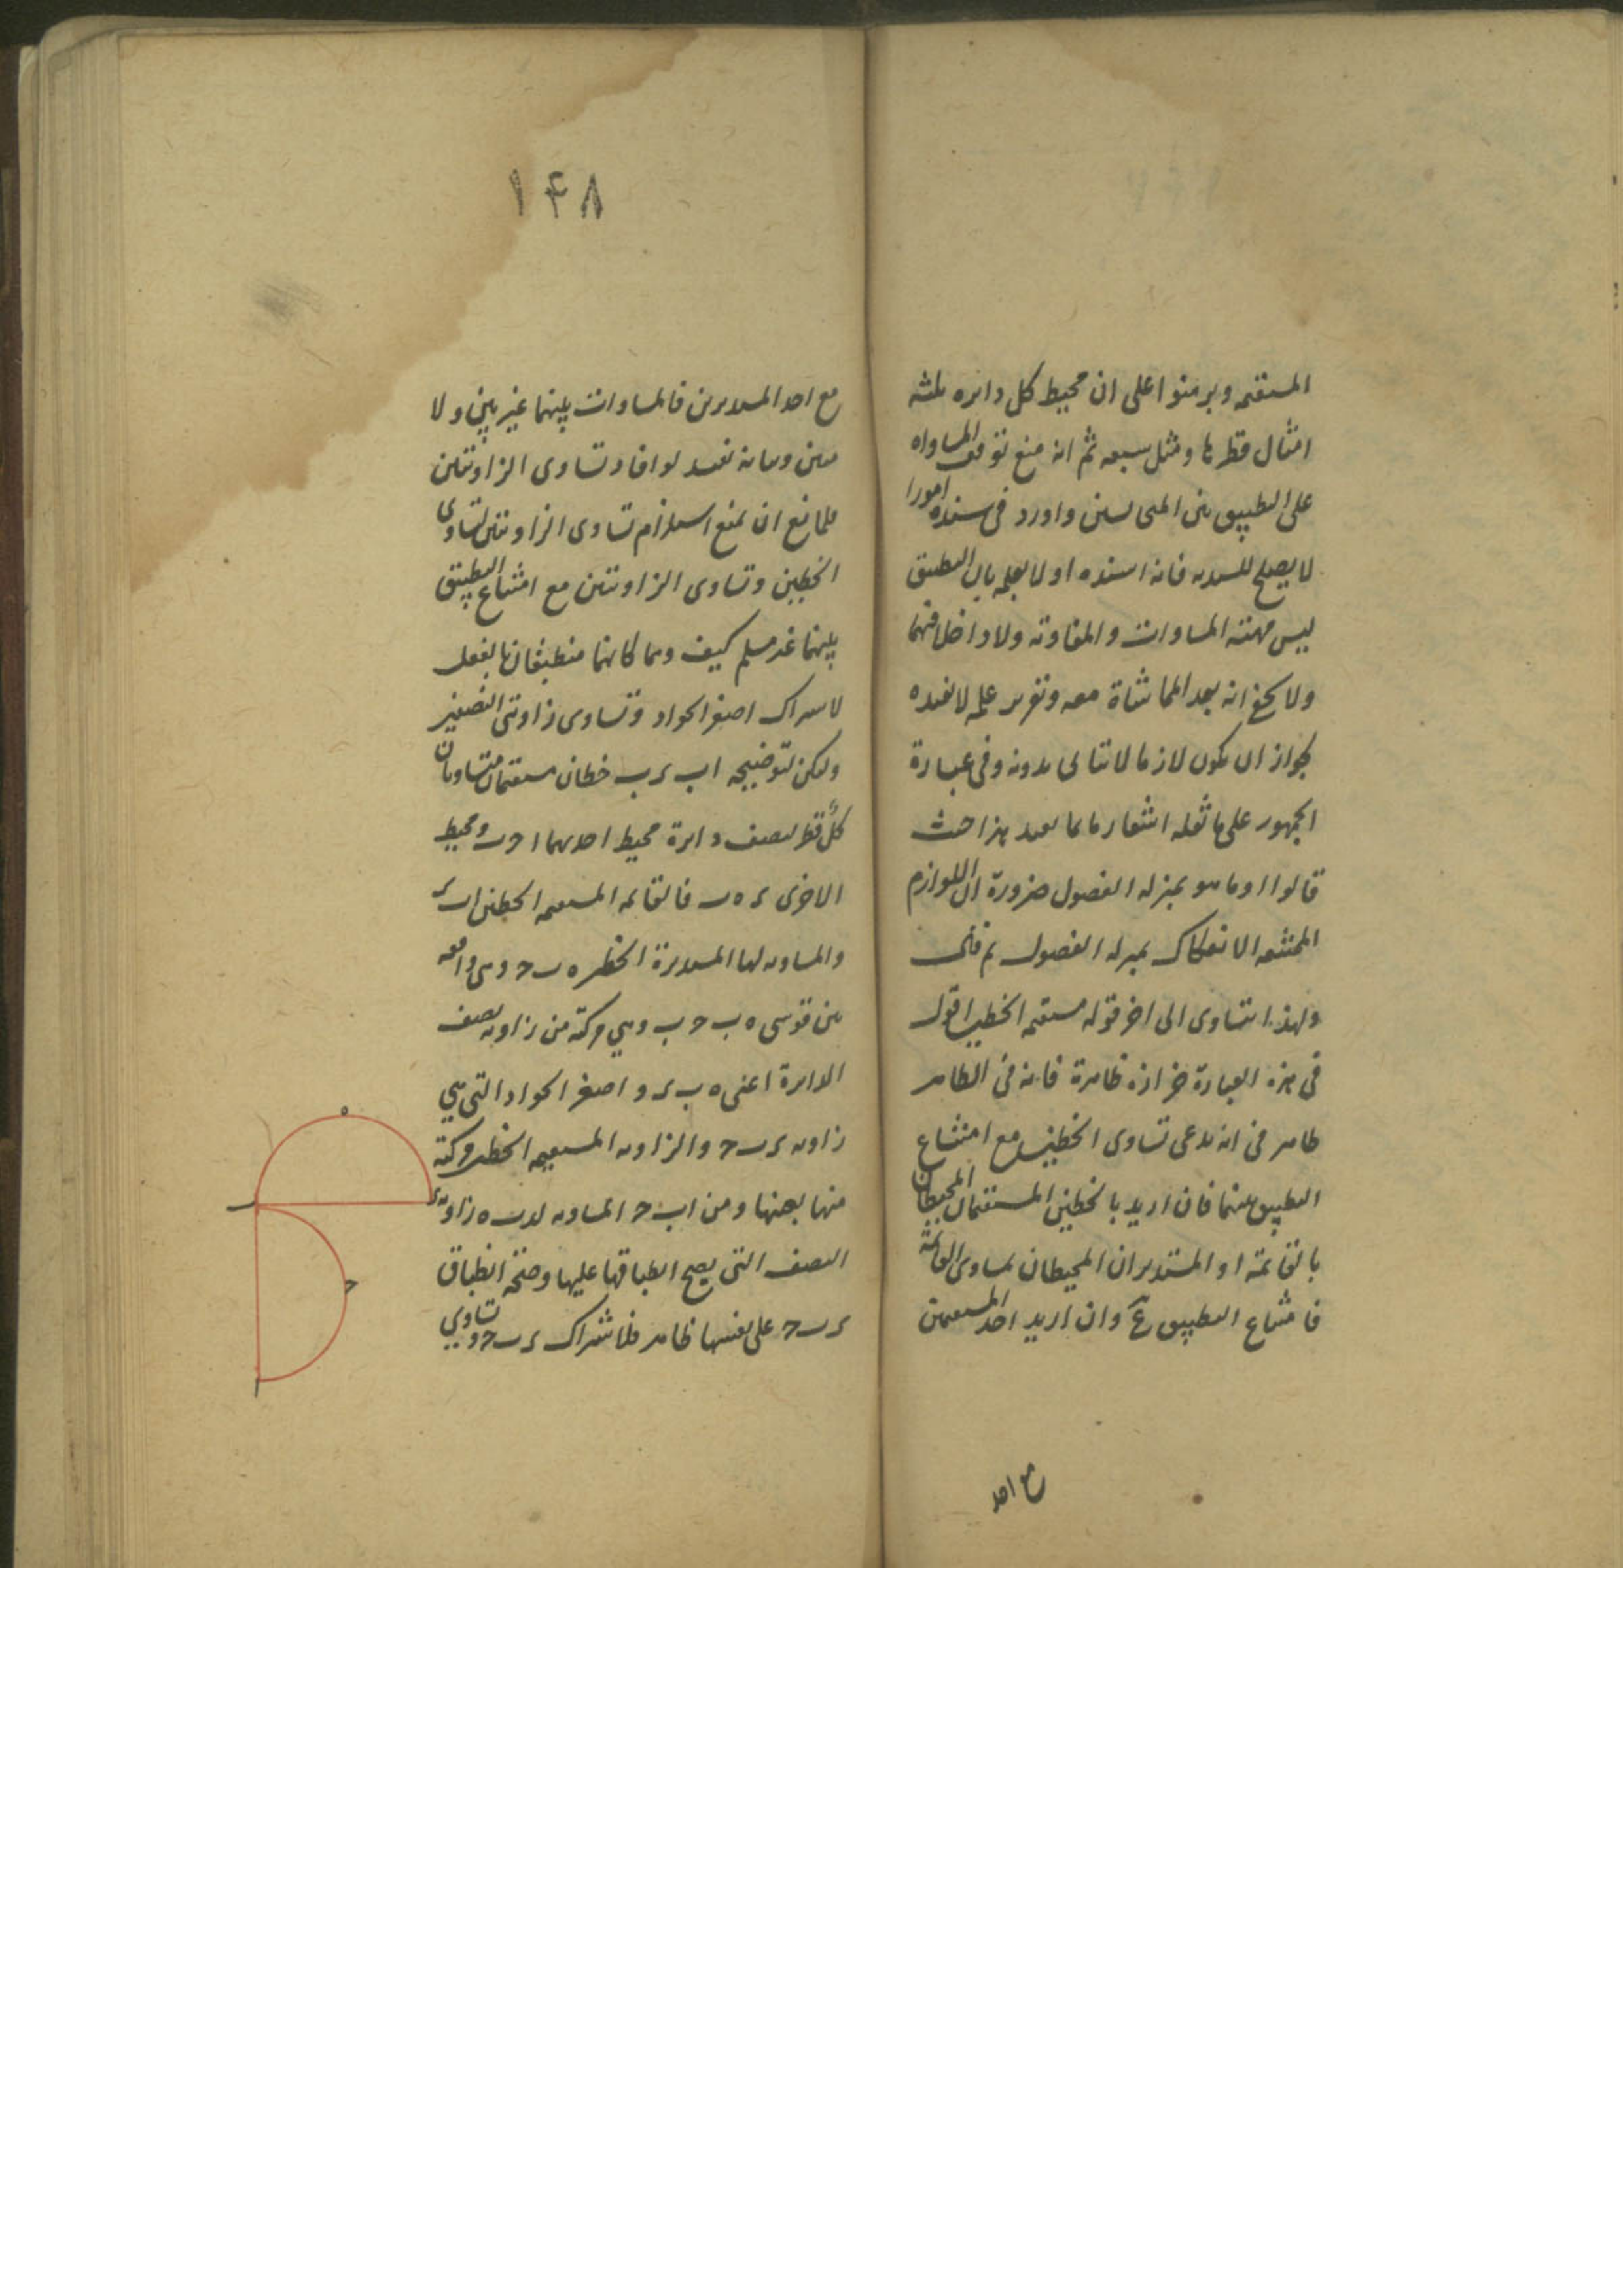 المستقيمة وبرهنوا على ان محيط كل دايره ثلثة
امثال قطرها ومثل سبعه ثم انه منع توقف المساواه
على التطبيق بين المتجانسين واورد في سنده امورا
لا يصلح للسنديه فانه اسنده اولا بعلمه بان التطبيق
ليس مهية المساوات والمفاوتة ولا داخلا فيهما
ولا يخفى انه بعد المماشاة معه وتقرير علمه لا يفيده
لجواز ان يكون لازما لا يتاتى بدونه وفي عبارة
الجمهور على ما نقله اشعار ما بما يفيد هذا حيث
قالوا او ما هو بمنزله الفصول ضرورة ان اللوازم
الممتنعه الانفكاك بمنزله الفصول ثم قال
ولهذا يتساوى الى اخر قوله مستقيمه الخطين اقول
في هذه العبارة حزازه ظاهرة فانه في الظاهر
ظاهر في انه يدعى تساوى الخطين مع امتناع
التطبيق بينهما فان اريد بالخطين المستقيمان المحيطان
بالقائمة او المستديران المحيطان بمساوى القائمة
فامتناع التطبيق مم وان اريد احد المستقيمين
مع احد
١۴٨
مع احد المستديرين فالمساوات بينهما غير بين ولا
مبين وبيانه يفيد لو افاد تساوى الزاويتين
فلمانع ان يمنع استلزام تساوى الزاويتين لتساوى
الخطين وتساوى الزاويتين مع امتناع التطبيق
بينهما غير مسلم كيف وهما كانهما منطبقان بالفعل
لاشتراك اصغر الحواد وتساوى زاويتى النصفين
وليكن لتوضيحه اب ى ب خطان مستقيمان متساويان
كل قطر لنصف دايرة محيط احدهما ا ح ب ومحيط
الاخرى ى ه ب فالقائمه المستقيمه الخطين ا ب ى
والمساويه لها المستديرة الخطين ه ب ح وهى واقعه
بين قوسى ه ب ح ب وهي مركبة من زاويه نصف
الدايرة اعنى ه ب ى واصغر الحواد التى هي
زاويه ى ب ح والزاويه المستقيمه الخطين مركبة
منها بعينها ومن ا ب ح المساويه لى ب ه زاويه
النصف التى يصح انطباقها عليها وصحة انطباق
ى ب ح على نفسها ظاهر فلاشتراك ى ب ح وتساوي
ه
ى
ب
ح
ا